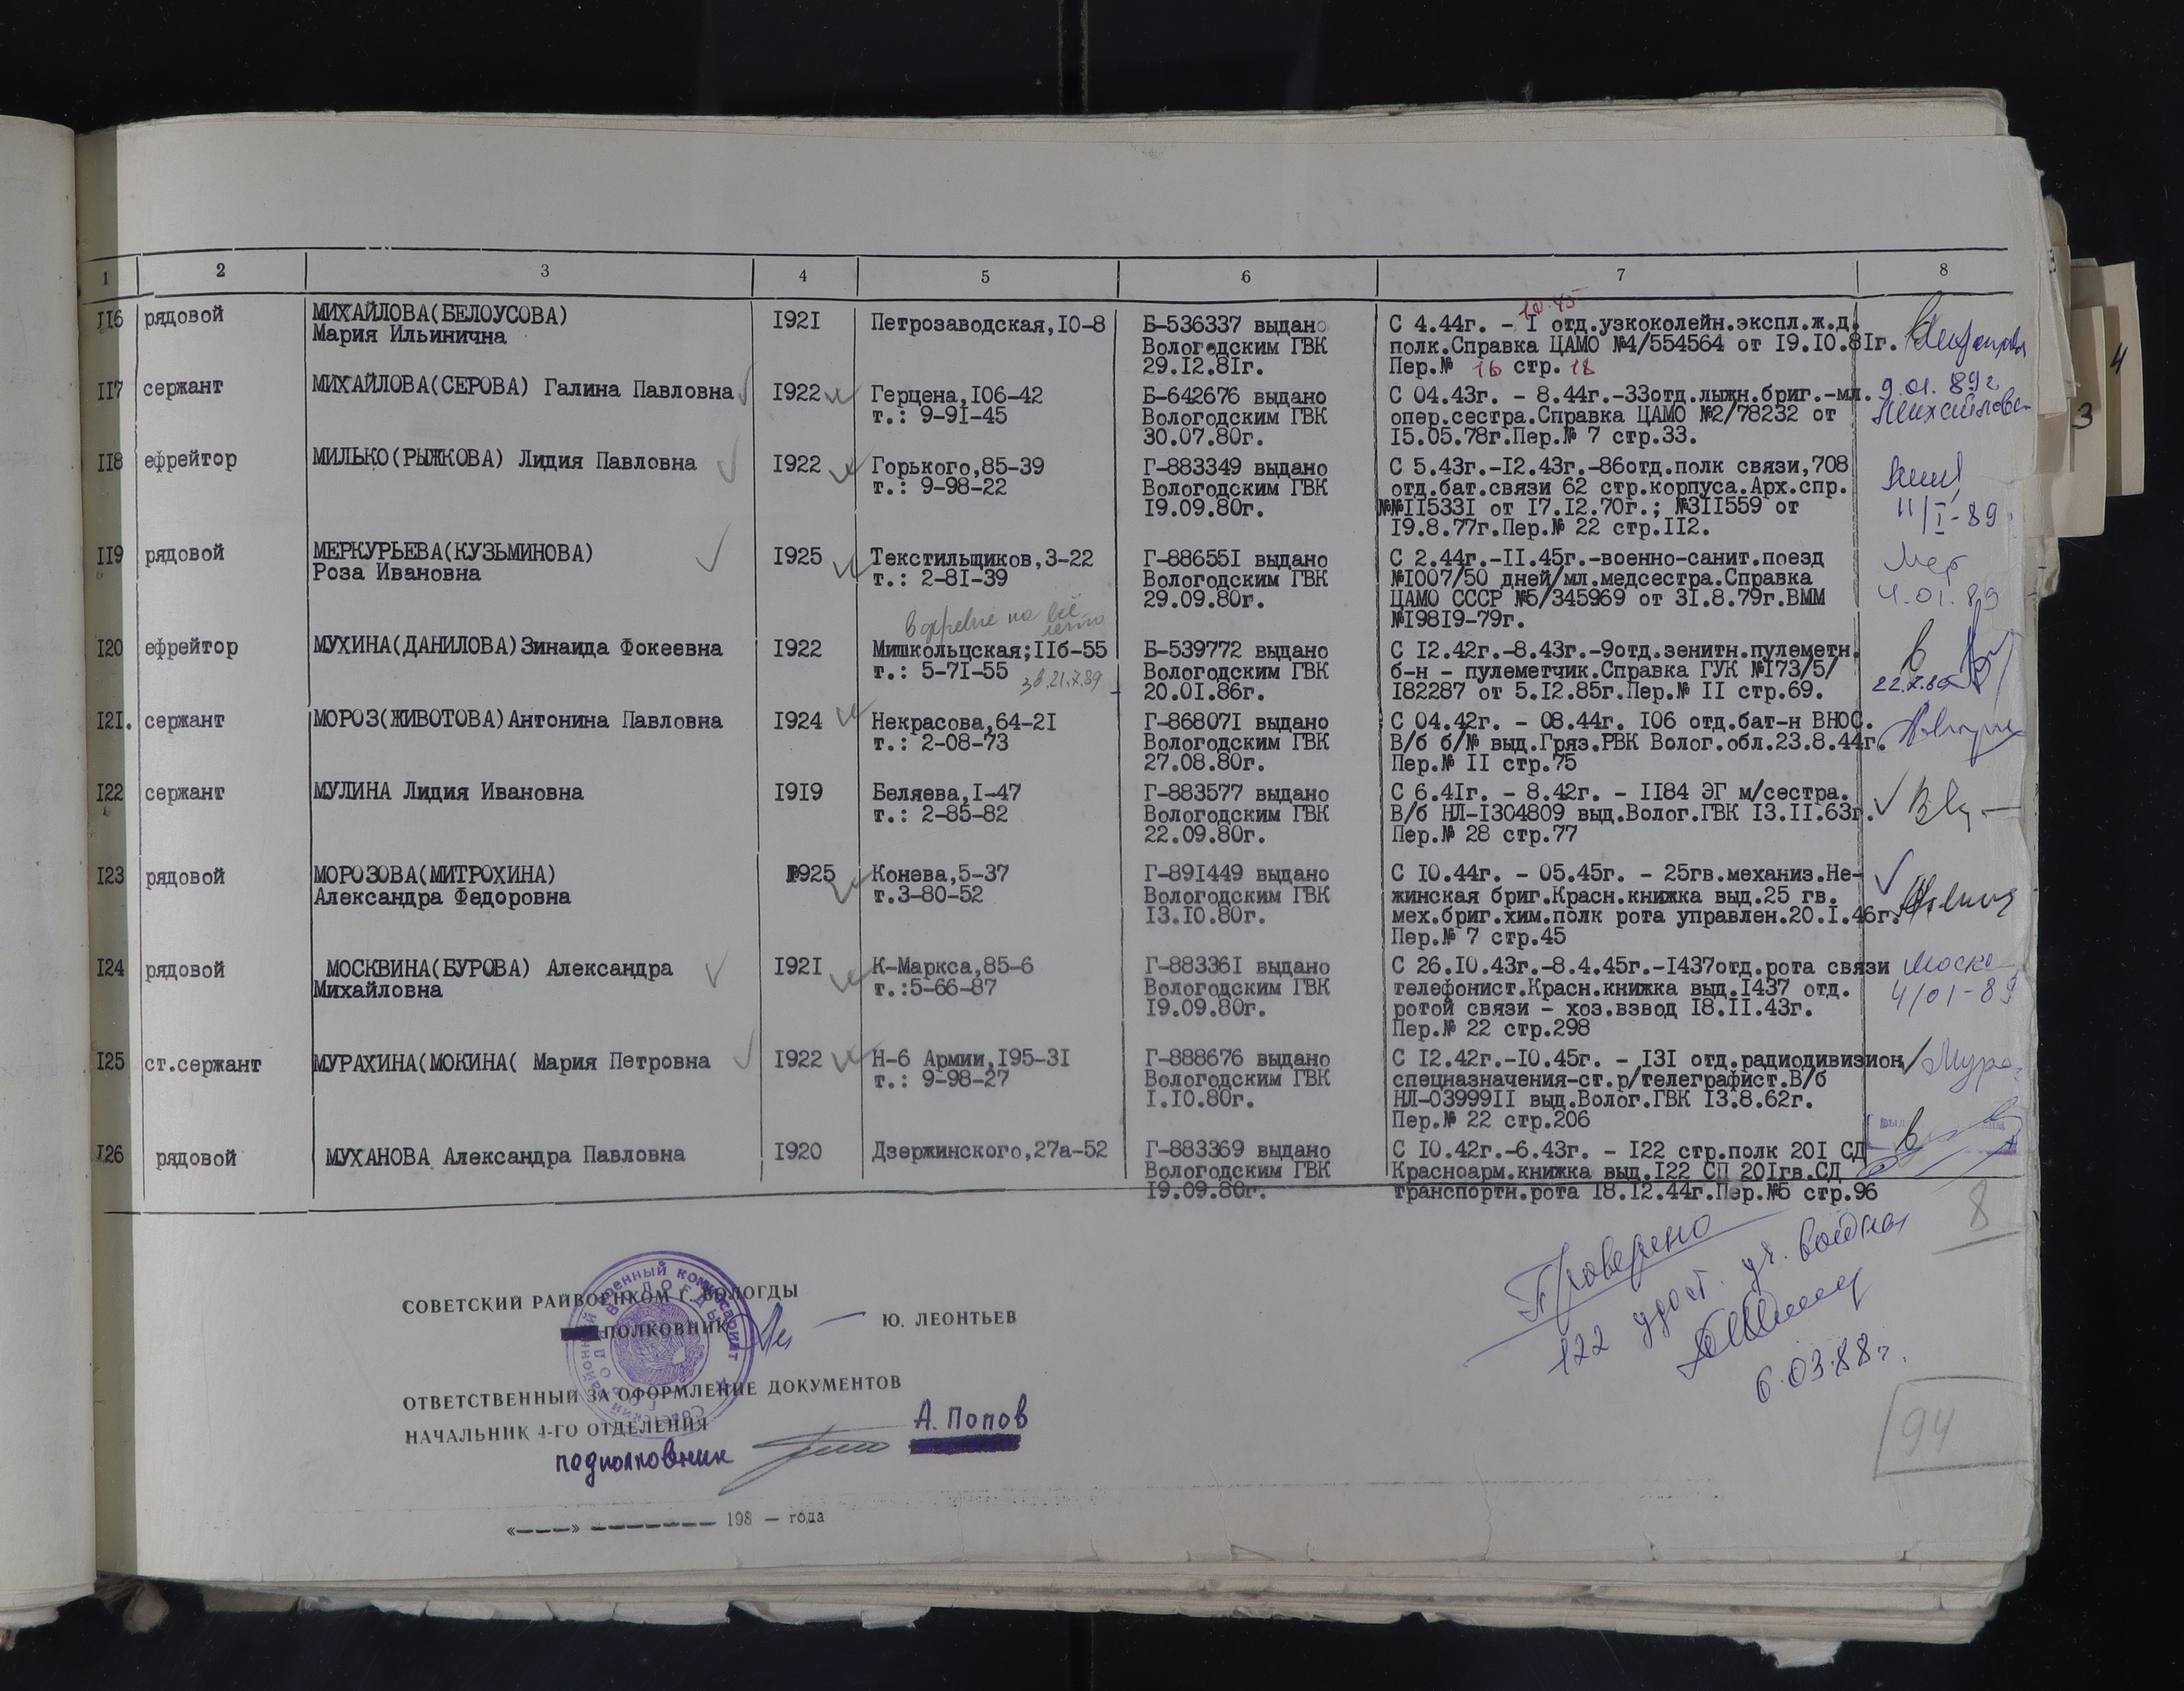 1 2 3 4 5 6 7 8
II6 рядовой МИХАЙЛОВА(БЕЛОУСОВА) I92I Петрозаводская,I0-8 Б-536337 выдано С 4.44г. - I отд.узкоколейн.экспл.ж.д.
10.45
Мария Ильинична Вологодским ГВК полк.Справка ЦАМО №4/554564 от I9.I0.8Iг.
29.I2.8Iг. Пер.№ 16 стр. 18
II7 сержант МИХАЙЛОВА(СЕРОВА) Галина Павловна I922 Герцена,I06-42 Б-642676 выдано С 04.43г. - 8.44г.-33отд.лыжн.бриг.-мл. 9.01.89г
т.: 9-9I-45 Вологодским ГВК опер.сестра.Справка ЦАМО №2/78232 от Михайлова
30.07.80г. I5.05.78г.Пер.№ 7 стр.33.
II8 ефрейтор МИЛЬКО(РЫЖКОВА) Лидия Павловна I922 Горького,85-39 Г-883349 выдано С 5.43г.-I2.43г.-86отд.полк связи,708
т.: 9-98-22 Вологодским ГВК отд.бат.связи 62 стр.корпуса.Арх.спр.
I9.09.80г. №№II533I от I7.I2.70г.; №3II559 от 11/I-89
I9.8.77г.Пер.№ 22 стр.II2.
II9 рядовой МЕРКУРЬЕВА(КУЗЬМИНОВА) I925 Текстильщиков,3-22 Г-88655I выдано С 2.44г.-II.45г.-военно-санит.поезд Мер
Роза Ивановна т.: 2-8I-39 Вологодским ГВК №I007/50 дней/мл.медсестра.Справка 4.01.89
29.09.80г. ЦАМО СССР №5/345969 от 3I.8.79г.ВММ
№I98I9-79г.
в деревне на всё лето
I20 ефрейтор МУХИНА(ДАНИЛОВА)Зинаида Фокеевна I922 Мишкольцская;IIб-55 Б-539772 выдано С I2.42г.-8.43г.-9отд.зенитн.пулеметн.
т.: 5-7I-55 зв.21.7.89 Вологодским ГВК б-н - пулеметчик.Справка ГУК №I73/5/
20.0I.86г. I82287 от 5.I2.85г.Пер.№ II стр.69.
I2I. сержант МОРОЗ(ЖИВОТОВА)Антонина Павловна I924 Некрасова,64-2I Г-86807I выдано С 04.42г. - 08.44г. I06 отд.бат-н ВНОС.
т.: 2-08-73 Вологодским ГВК В/б б/№ выд.Гряз.РВК Волог.обл.23.8.44г.
27.08.80г. Пер.№ II стр.75
I22 сержант МУЛИНА Лидия Ивановна I9I9 Беляева,I-47 Г-883577 выдано С 6.4Iг. - 8.42г. - II84 ЭГ м/сестра.
т.: 2-85-82 Вологодским ГВК В/б НЛ-I304809 выд.Волог.ГВК I3.II.63г.
22.09.80г. Пер.№ 28 стр.77
I23 рядовой МОРОЗОВА(МИТРОХИНА) I925 Конева,5-37 Г-89I449 выдано С I0.44г. - 05.45г. - 25гв.механиз.Не-
Александра Федоровна т.3-80-52 Вологодским ГВК жинская бриг.Красн.книжка выд.25 гв.
I3.I0.80г. мех.бриг.хим.полк рота управлен.20.I.46г.
Пер.№ 7 стр.45
I24 рядовой МОСКВИНА(БУРОВА) Александра I92I К-Маркса,85-6 Г-88336I выдано С 26.I0.43г.-8.4.45г.-I437отд.рота связи Моск
Михайловна т.:5-66-87 Вологодским ГВК телефонист.Красн.книжка выд.I437 отд. 4/01-89
I9.09.80г. ротой связи - хоз.взвод I8.II.43г.
Пер.№ 22 стр.298
I25 ст.сержант МУРАХИНА(МОКИНА( Мария Петровна I922 Н-6 Армии,I95-3I Г-888676 выдано С I2.42г.-I0.45г. - I3I отд.радиодивизион/ Мура
т.: 9-98-27 Вологодским ГВК спецназначения-ст.р/телеграфист.В/б
I.I0.80г. НЛ-03999II выд.Волог.ГВК I3.8.62г.
Пер.№ 22 стр.206
I26 рядовой МУХАНОВА Александра Павловна I920 Дзержинского,27а-52 Г-883369 выдано С I0.42г.-6.43г. - I22 стр.полк 20I СД
Вологодским ГВК Красноарм.книжка выд.I22 СП 20Iгв.СД
I9.09.80г. транспортн.рота I8.I2.44г.Пер.№5 стр.96
8
Проверено
122 удост. уч. войны
6.03.88г.
94
СОВЕТСКИЙ РАЙВОЕНКОМ Г. ВОЛОГДЫ
ПОЛКОВНИК Ю. ЛЕОНТЬЕВ
ОТВЕТСТВЕННЫЙ ЗА ОФОРМЛЕНИЕ ДОКУМЕНТОВ
НАЧАЛЬНИК 4-ГО ОТДЕЛЕНИЯ
подполковник А. Попов
«---» ------- 198 — года